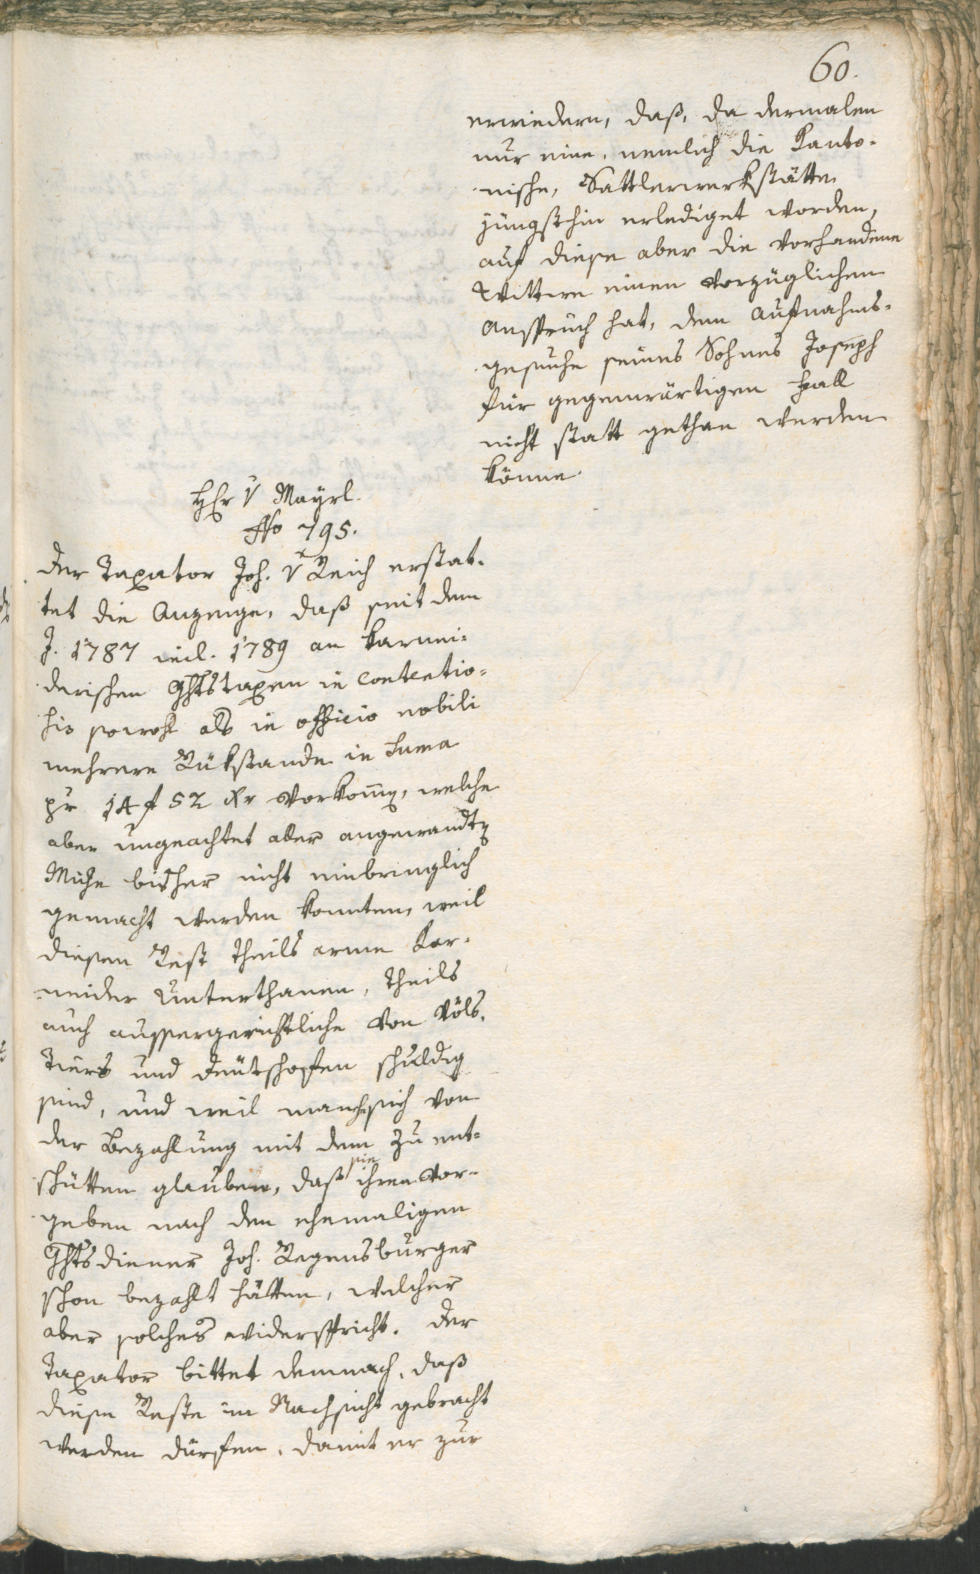 60.
erwiedern, daß, da dermalen
nur eine, nemlich die Kanto-
nische, Sattlerwerkstätte
jüngsthin erlediget worden,
auf diese aber die vorhandene
Wittwe einen vorzüglichen
Anspruch hat, dem Aufnahms-
gesuche seines Sohnes Joseph
für gegenwärtigen Fall
nicht statt gethan werden
könne.
Hr v Mayrl.
No 795.
Der Taxator Joh. v Reich erstat-
tet die Anzeige, daß seit dem
J. 1787 incl. 1789 an karnei-
derischen Ghtstaxen in contentio-
sis sowohl als in officio nobili
mehrere Rükstände in Suma
pr 14 f 52 Xr vorkomen, welche
aber ungeachtet aller angewandten
Mühe bisher nicht einbringlich
gemacht werden konnten, weil
diesen Rest theils arme Kar-
neider Unterthanen, theils
auch aussergerichtliche von Völs,
Tiers und Deutschofen schuldig
sind, und weil manche sich von
der Bezahlung mit dem zu ent-
schütten glauben, daß sie ihrem Vor-
geben nach den ehemaligen
Ghtsdiener Joh. Regensburger
schon bezahlt hätten, welcher
aber solches widerspricht. Der
Taxator bittet demnach, daß
diese Reste in Nachsicht gebracht
werden dürfen, damit er zur